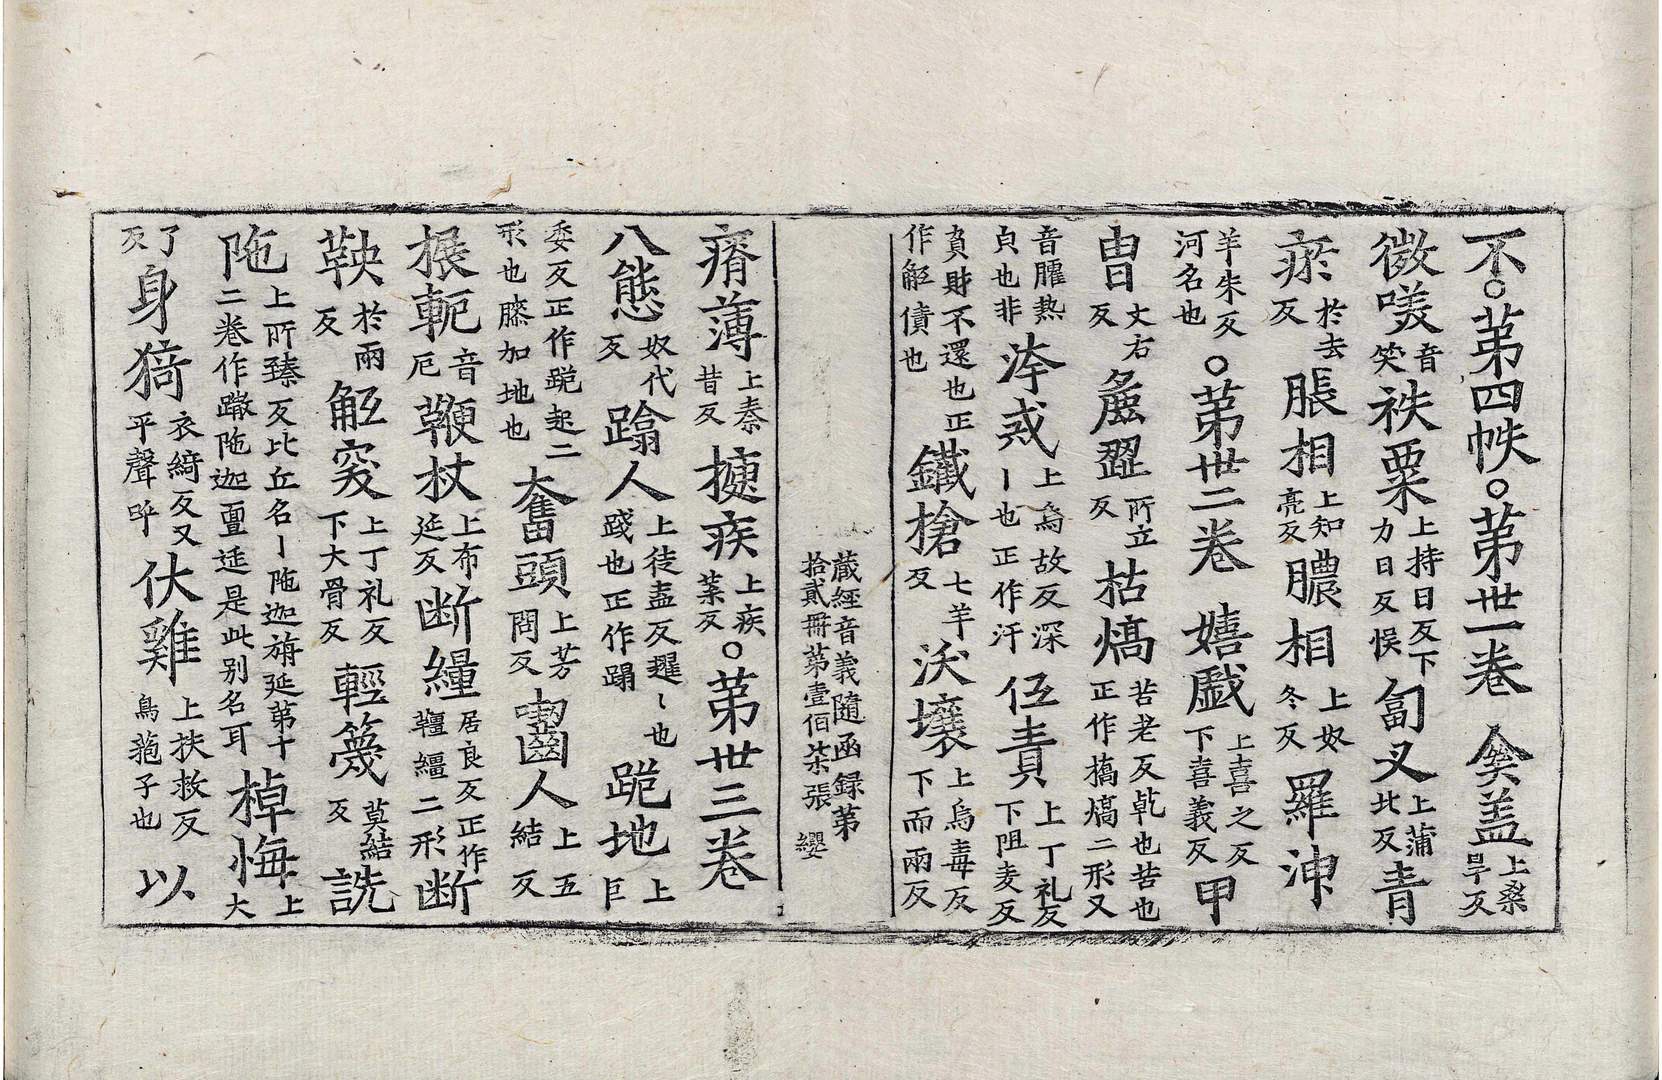 不○苐四帙○苐卅一卷 㒇盖上桑旱反
微𠸍音笑袟粟上持日反下力日反悞匐叉上蒲北反青
瘀於去反脹相上知亮反膿相上奴冬反羅沖
羊朱反河名也○苐卅二卷 嬉戱上喜之反下喜義反甲
冑丈右反麁澀所立反枯熇苦老反乹也苦也正作槁熇二形又
音臛熱貞也非洿戓上烏故反深丨也正作汙伍責上丁礼反下阻麦反
負財不還也正作觝債也鐵槍七羊反沃壤上烏毒反下而兩反
藏經音義隨函録苐
拾貳冊苐壹佰柒張 纓
瘠薄上秦昔反㨗疾上疾葉反○苐卅三卷
八態奴代反蹹人上徒盍反䠟丨也踐也正作蹋跪地上巨
委反正作跪起二形也膝加地也奮頭上芳問反齧人上五結反
棖軛音厄鞭杖上布延反断繮居良反正作韁繮二形断
鞅於兩反觝突上丁礼反下大骨反輕篾莫結反詵
陁上所臻反比丘名丨陁迦旃延苐十二卷作蹴陁迦亶遮是此别名耳棹悔上大
了反身猗衣綺反又平聲呼伏雞上扶救反鳥菢子也以